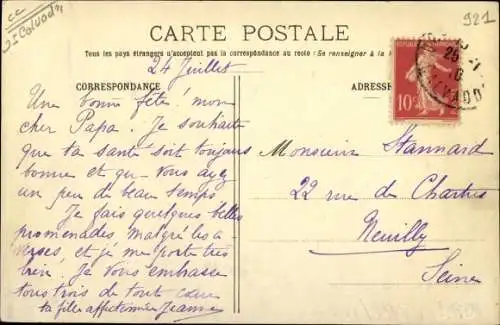 cc
Calvados
921
CARTE POSTALE
Tous les pays étrangers n'acceptent pas la correspondance au recto (Se renseigner à la
CORRESPONDANCE
ADRESSE
RÉPUBLIQUE FRANÇAISE
10c
CALVADOS
24 Juillet
Une bonne fête! mon
cher Papa. Je souhaite
que ta santé soit toujours
bonne et qu-vous ayez
un peu de beau temps.
Je fais quelques belles
promenades malgré les a
verses, et je me porte très
bien. Je vous embrasse
tous trois de tout cœur
ta fille affectionnée Jeanne
Monsieur Stannard
22 rue de Chartres
Neuilly
Seine